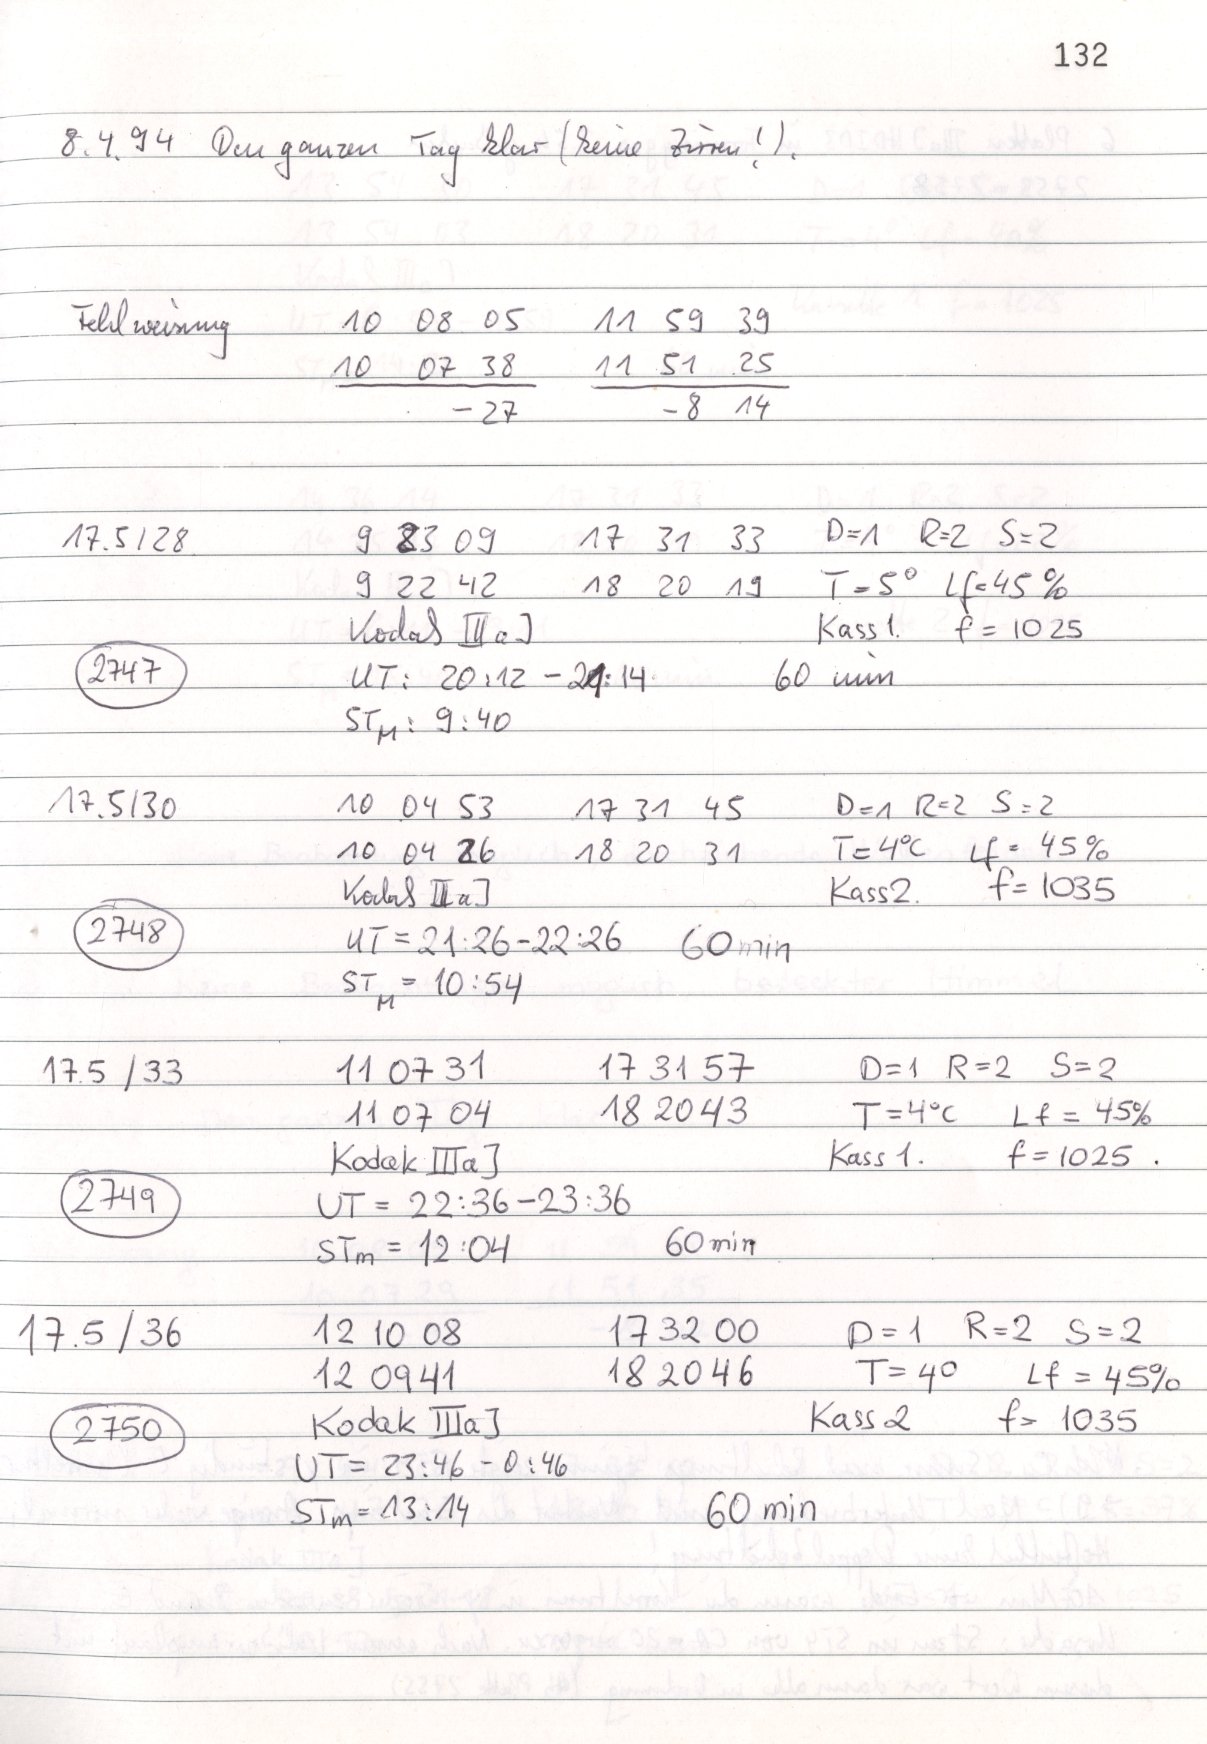 132
8.4.94 Den ganzen Tag klar (keine Zirren!).
Fehlweisung 10 08 05 11 59 39
10 07 38 11 51 25
-27 -8 14
17.5/28 9 23 09 17 31 33 D=1 R=2 S=2
9 22 42 18 20 19 T=5° Lf=45%
Kodak IIIaJ Kass 1. f=1025
2747 UT: 20:12 - 21:14 60 min
STM: 9:40
17.5/30 10 04 53 17 31 45 D=1 R=2 S=2
10 04 26 18 20 31 T=4°C Lf=45%
Kodak IIIaJ Kass 2. f=1035
2748 UT=21:26-22:26 60min
STM=10:54
17.5/33 11 07 31 17 31 57 D=1 R=2 S=2
11 07 04 18 20 43 T=4°C Lf=45%
Kodak IIIaJ Kass 1. f=1025.
2749 UT=22:36-23:36
STm=12:04 60min
17.5/36 12 10 08 17 32 00 D=1 R=2 S=2
12 09 41 18 20 46 T=4° Lf=45%
2750 Kodak IIIaJ Kass 2 f=1035
UT=23:46-0:46
STm=13:14 60 min